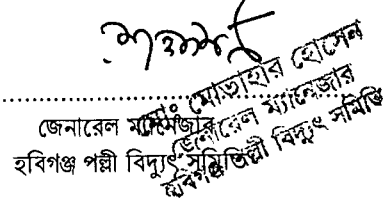 জেনারেল ম্যানেজার
হবিগঞ্জ পল্লী বিদ্যুৎ সমিতি
মোঃ মোতাহার হোসেন
জেনারেল ম্যানেজার
হবিগঞ্জ পল্লী বিদ্যুৎ সমিতি